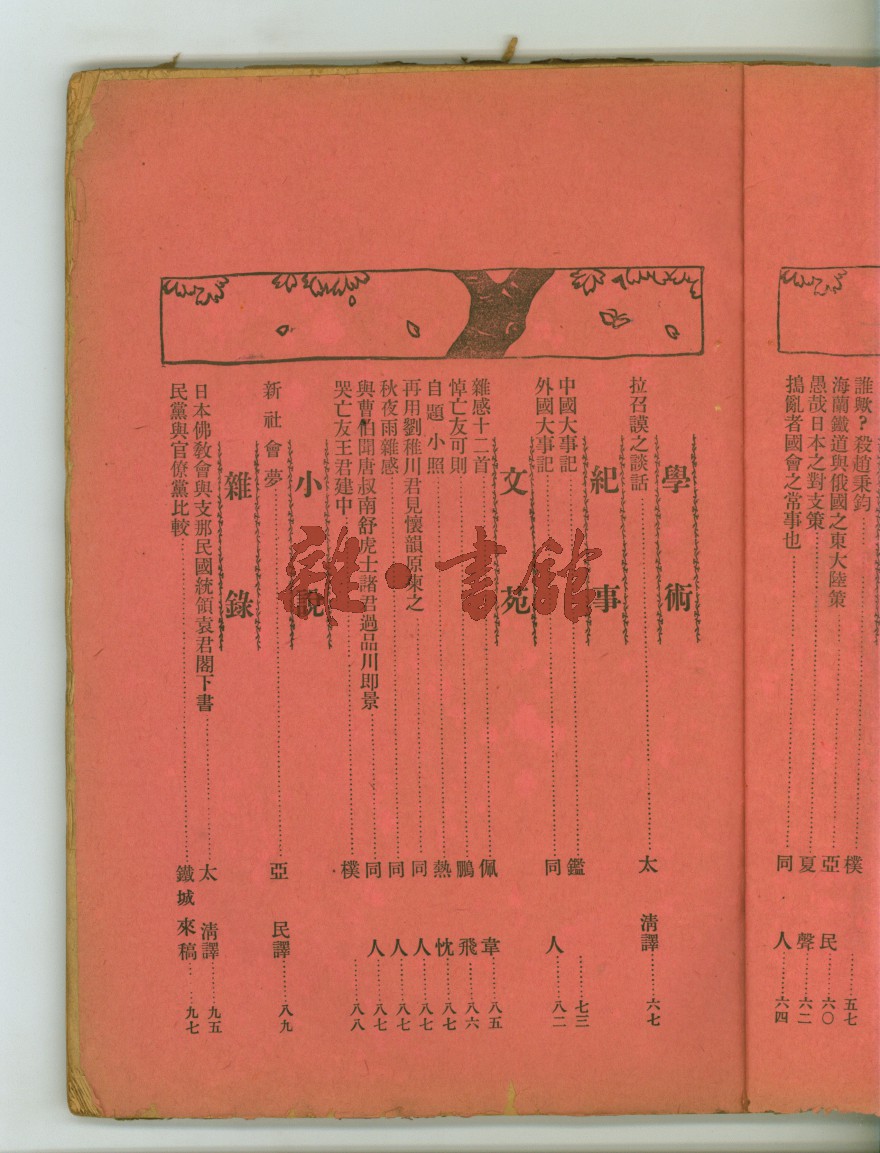 誰歟?殺趙秉鈞……樸……五七
海蘭鐵道與俄國之東大陸策……亞民……六〇
愚哉日本之對支策……夏聲……六二
搗亂者國會之常事也……同人……六四
學術
拉召謨之談話……太清譯……六七
紀事
中國大事記……鑑……七三
外國大事記……同人……八二
文苑
雜感十二首……佩韋……八五
悼亡友可則……鵬飛……八六
自題小照……熱忱……八七
再用劉稚川君見懷韻原柬之……同人……八七
秋夜雨雜感……同人……八七
與曹伯聞唐叔南舒虎士諸君過品川即景……同人……八七
哭亡友王君建中……樸……八八
小說
新社會夢……亞民譯……八九
雜錄
日本佛敎會與支那民國統領袁君閣下書……太清譯……九五
民黨與官僚黨比較……鐵城來稿……九七
雜·書館